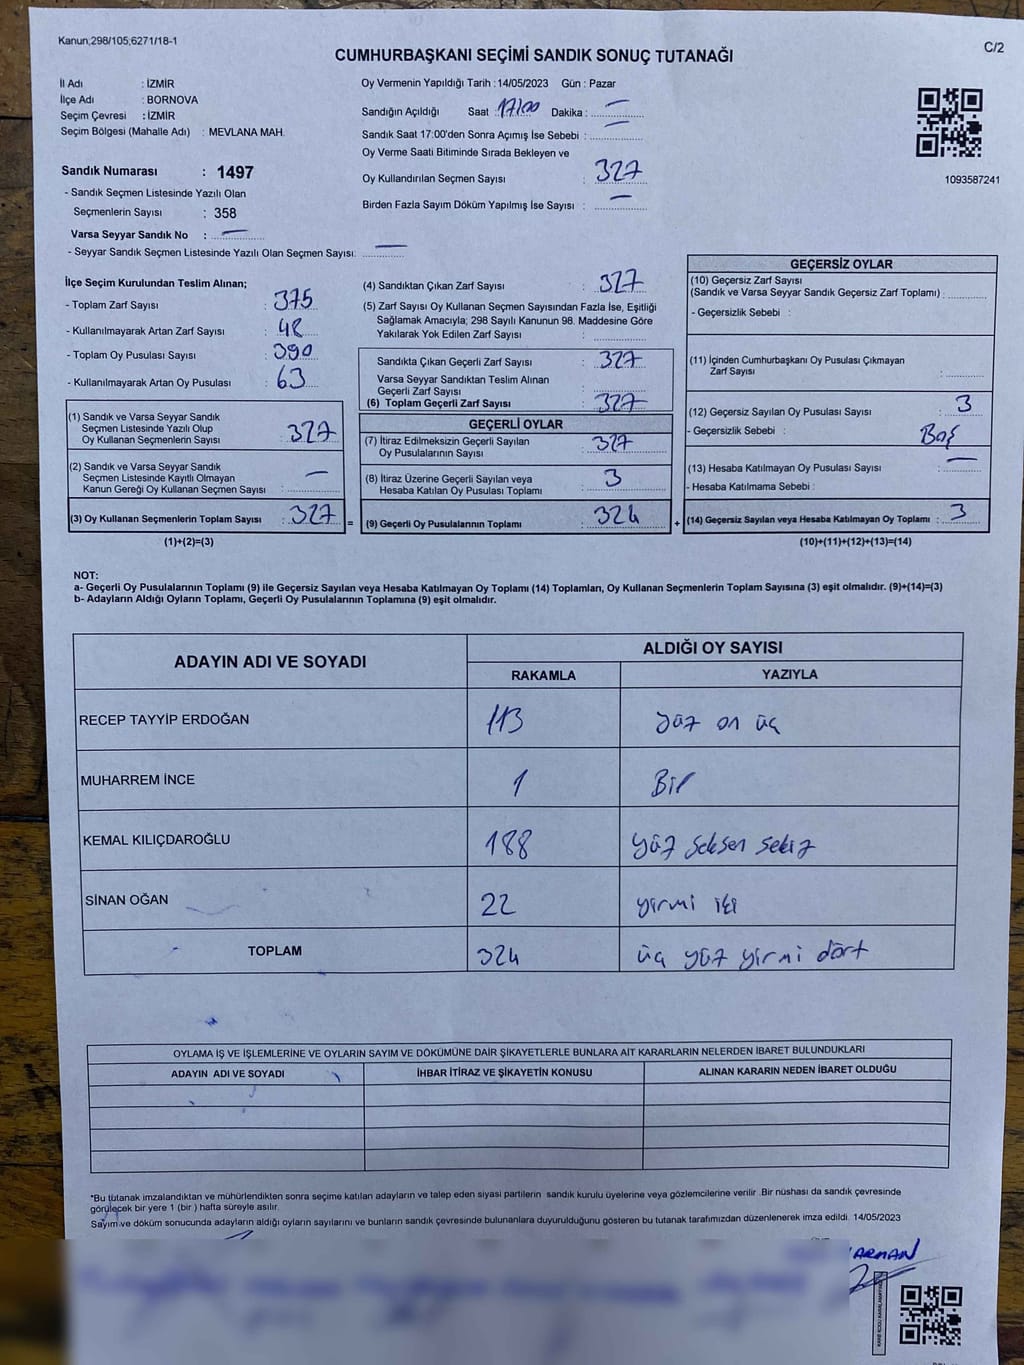 Kanun;298/105;6271/18-1
C/2
CUMHURBAŞKANI SEÇİMİ SANDIK SONUÇ TUTANAĞI
İl Adı : İZMİR
İlçe Adı : BORNOVA
Seçim Çevresi : İZMİR
Seçim Bölgesi (Mahalle Adı) : MEVLANA MAH.
Oy Vermenin Yapıldığı Tarih : 14/05/2023 Gün : Pazar
Sandığın Açıldığı Saat : 17/00 Dakika : —
Sandık Saat 17:00'den Sonra Açımış İse Sebebi : —
Oy Verme Saati Bitiminde Sırada Bekleyen ve
Oy Kullandırılan Seçmen Sayısı : 327
Birden Fazla Sayım Döküm Yapılmış İse Sayısı : —
1093587241
Sandık Numarası : 1497
- Sandık Seçmen Listesinde Yazılı Olan
Seçmenlerin Sayısı : 358
Varsa Seyyar Sandık No : —
- Seyyar Sandık Seçmen Listesinde Yazılı Olan Seçmen Sayısı: —
İlçe Seçim Kurulundan Teslim Alınan;
- Toplam Zarf Sayısı : 375
- Kullanılmayarak Artan Zarf Sayısı : 48
- Toplam Oy Pusulası Sayısı : 390
- Kullanılmayarak Artan Oy Pusulası : 63
(1) Sandık ve Varsa Seyyar Sandık
Seçmen Listesinde Yazılı Olup
Oy Kullanan Seçmenlerin Sayısı : 327
(2) Sandık ve Varsa Seyyar Sandık
Seçmen Listesinde Kayıtlı Olmayan
Kanun Gereği Oy Kullanan Seçmen Sayısı : —
(3) Oy Kullanan Seçmenlerin Toplam Sayısı : 327 =
(1)+(2)=(3)
(4) Sandıktan Çıkan Zarf Sayısı : 327
(5) Zarf Sayısı Oy Kullanan Seçmen Sayısından Fazla İse, Eşitliği
Sağlamak Amacıyla; 298 Sayılı Kanunun 98. Maddesine Göre
Yakılarak Yok Edilen Zarf Sayısı :
Sandıkta Çıkan Geçerli Zarf Sayısı : 327
Varsa Seyyar Sandıktan Teslim Alınan
Geçerli Zarf Sayısı :
(6) Toplam Geçerli Zarf Sayısı : 327
GEÇERLİ OYLAR
(7) İtiraz Edilmeksizin Geçerli Sayılan
Oy Pusulalarının Sayısı : 327
(8) İtiraz Üzerine Geçerli Sayılan veya
Hesaba Katılan Oy Pusulası Toplamı : 3
(9) Geçerli Oy Pusulalarının Toplamı : 324 +
GEÇERSİZ OYLAR
(10) Geçersiz Zarf Sayısı
(Sandık ve Varsa Seyyar Sandık Geçersiz Zarf Toplamı) :
- Geçersizlik Sebebi :
(11) İçinden Cumhurbaşkanı Oy Pusulası Çıkmayan
Zarf Sayısı :
(12) Geçersiz Sayılan Oy Pusulası Sayısı : 3
- Geçersizlik Sebebi : Boş
(13) Hesaba Katılmayan Oy Pusulası Sayısı : —
- Hesaba Katılmama Sebebi :
(14) Geçersiz Sayılan veya Hesaba Katılmayan Oy Toplamı : 3
(10)+(11)+(12)+(13)=(14)
NOT:
a- Geçerli Oy Pusulalarının Toplamı (9) ile Geçersiz Sayılan veya Hesaba Katılmayan Oy Toplamı (14) Toplamları, Oy Kullanan Seçmenlerin Toplam Sayısına (3) eşit olmalıdır. (9)+(14)=(3)
b- Adayların Aldığı Oyların Toplamı, Geçerli Oy Pusulalarının Toplamına (9) eşit olmalıdır.
ADAYIN ADI VE SOYADI
ALDIĞI OY SAYISI
RAKAMLA YAZIYLA
RECEP TAYYİP ERDOĞAN 113 yüz on üç
MUHARREM İNCE 1 Bir
KEMAL KILIÇDAROĞLU 188 yüz seksen sekiz
SİNAN OĞAN 22 yirmi iki
TOPLAM 324 üç yüz yirmi dört
OYLAMA İŞ VE İŞLEMLERİNE VE OYLARIN SAYIM VE DÖKÜMÜNE DAİR ŞİKAYETLERLE BUNLARA AİT KARARLARIN NELERDEN İBARET BULUNDUKLARI
ADAYIN ADI VE SOYADI İHBAR İTİRAZ VE ŞİKAYETİN KONUSU ALINAN KARARIN NEDEN İBARET OLDUĞU
*Bu tutanak imzalandıktan ve mühürlendikten sonra seçime katılan adayların ve talep eden siyasi partilerin sandık kurulu üyelerine veya gözlemcilerine verilir .Bir nüshası da sandık çevresinde
görülecek bir yere 1 (bir ) hafta süreyle asılır.
Sayım ve döküm sonucunda adayların aldığı oyların sayılarını ve bunların sandık çevresinde bulunanlara duyurulduğunu gösteren bu tutanak tarafımızdan düzenlenerek imza edildi. 14/05/2023
ARMAN